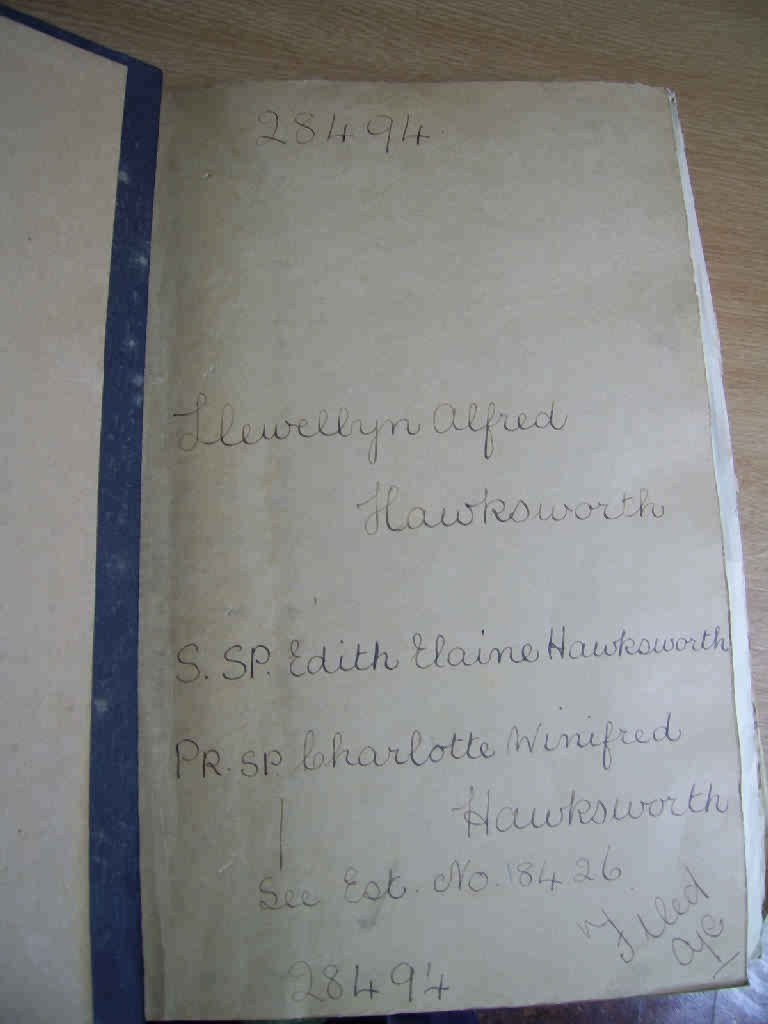 28494
Llewellyn Alfred
Hawksworth
S. SP. Edith Elaine Hawksworth
PR. SP. Charlotte Winifred
Hawksworth
See Est. No. 18426
Filed
28494